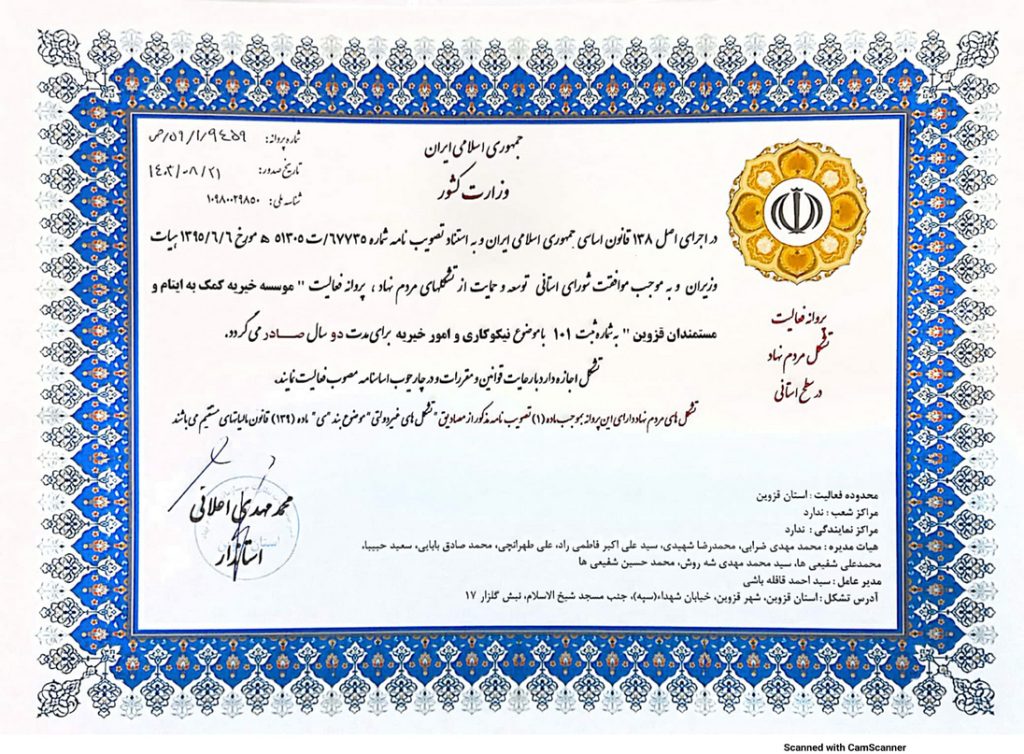 جمهوری اسلامی ایران
وزارت کشور
شماره پروانه: ۵۹/۱/۹۴۵۹/ص
تاریخ صدور: ۱۴۰۳/۰۸/۲۱
شناسه ملی: ۱۰۹۸۰۰۲۹۸۵۰
پروانه فعالیت
تشکل مردم نهاد
در سطح استانی
در اجرای اصل ۱۳۸ قانون اساسی جمهوری اسلامی ایران و به استناد تصویب نامه شماره ۶۷۷۳۵/ت ۵۱۳۰۵ ه مورخ ۱۳۹۵/۶/۶ هیات
وزیران و به موجب موافقت شورای استانی توسعه و حمایت از تشکلهای مردم نهاد ، پروانه فعالیت " موسسه خیریه کمک به ایتام و
مستمندان قزوین " به شماره ثبت ۱۰۱ با موضوع نیکوکاری و امور خیریه برای مدت دو سال صادر می گردد.
تشکل اجازه دارد با رعایت قوانین و مقررات و در چارچوب اساسنامه مصوب فعالیت نمایند.
تشکل های مردم نهاد دارای این پروانه بموجب ماده (۱) تصویب نامه مذکور از مصادیق " تشکل های غیردولتی" موضوع بند "سی" ماده (۱۳۹) قانون مالیاتهای مستقیم می باشند
محمد مهدی اعلائی
استاندار
محدوده فعالیت : استان قزوین
مراکز شعب : ندارد
مراکز نمایندگی : ندارد
هیات مدیره : محمد مهدی ضرابی، محمدرضا شهیدی، سید علی اکبر فاطمی راد، علی طهرانچی، محمد صادق بابایی، سعید حبیبیا،
محمدعلی شفیعی ها، سید محمد مهدی شه روش، محمد حسین شفیعی ها
مدیر عامل : سید احمد قافله باشی
آدرس تشکل : استان قزوین، شهر قزوین، خیابان شهداء(سپه)، جنب مسجد شیخ الاسلام، نبش گلزار ۱۷
Scanned with CamScanner